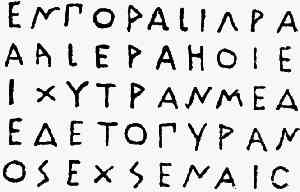 ΕΝΓΟΡΑΙΙΛΡΑ
ΑΑLΕΡΑΗΟΙΕ
ΙΧΥΤΡΑΝΜΕΔ
ΕΔΕΤΟΓΥΡΑΝ
ΟSΕΧSΕΝΑΙC